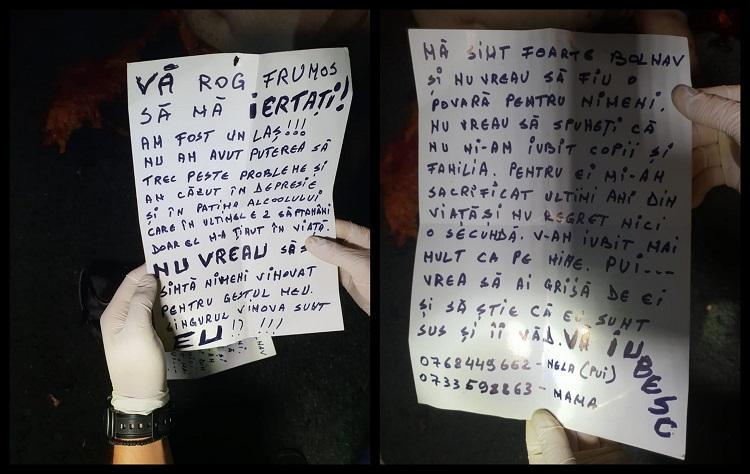 VĂ ROG FRUMOS
SĂ MĂ IERTAȚI!
AM FOST UN LAȘ!!!
NU AM AVUT PUTEREA SĂ
TREC PESTE PROBLEME ȘI
AM CĂZUT ÎN DEPRESIE
ȘI ÎN PATIMA ALCOOLULUI
CARE ÎN ULTIMELE 2 SĂPTĂMÂNI
DOAR EL M-A ȚINUT ÎN VIAȚĂ.
NU VREAU SĂ S
SIMTĂ NIMENI VINOVAT
PENTRU GESTUL MEU.
SINGURUL VINOVA SUNT
EU !? !!!
MĂ SIMT FOARTE BOLNAV
ȘI NU VREAU SĂ FIU O
POVARĂ PENTRU NIMENI.
NU VREAU SĂ SPUNEȚI CĂ
NU MI-AM IUBIT COPII ȘI
FAMILIA. PENTRU EI MI-AM
SACRIFICAT ULTIMI ANI DIN
VIAȚĂ SI NU REGRET NICI
O SECUNDĂ. V-AM IUBIT MAI
MULT CA PE MINE. PUI...
VREA SĂ AI GRIJĂ DE EI
ȘI SĂ ȘTIE CĂ EU SUNT
SUS ȘI ÎI VĂD. VĂ IUBESC
0768449662 - MELA (PUI)
0733598863 - MAMA